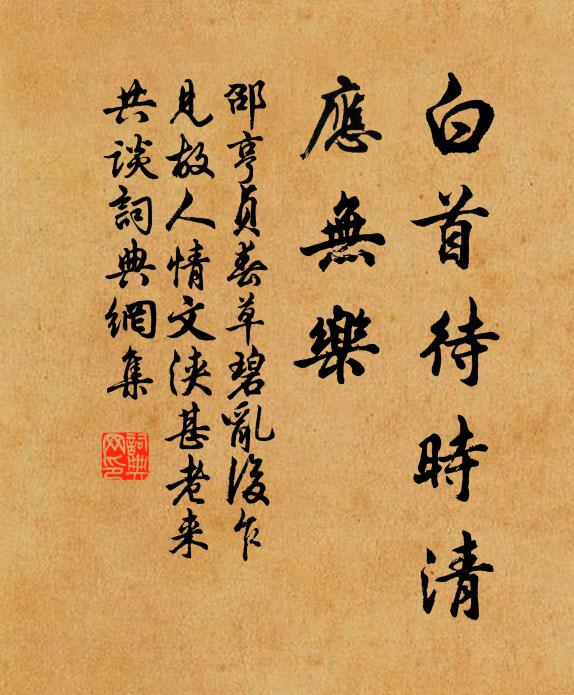 白首待時清
應無樂
邵亨貞春草碧亂後乍
見故人情文浹甚老来
共談詞典網集
詞典
网印